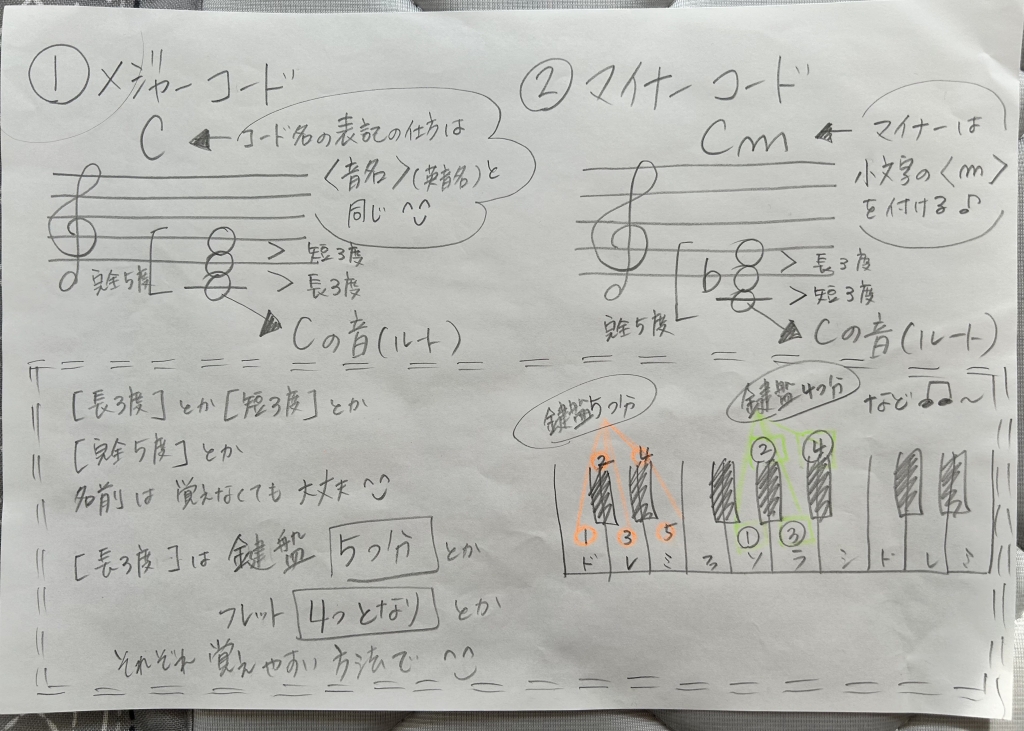 ① メジャーコード
C ← コード名の表記の仕方は
〈音名〉(英音名)と
同じ
短3度
長3度
完全5度
Cの音(ルート)
② マイナーコード
Cm ← マイナーは
小文字の〈m〉
を付ける♪
♭
長3度
短3度
完全5度
Cの音(ルート)
[長3度]とか[短3度]とか
[完全5度]とか
名前は覚えなくても大丈夫
[長3度]は鍵盤 5つ分 とか
フレット 4つとなり とか
それぞれ覚えやすい方法で
鍵盤5つ分
鍵盤4つ分
など♫〜
2 4 ② ④
1 3 5 ① ③
ド レ ミ ファ ソ ラ シ ド レ ミ